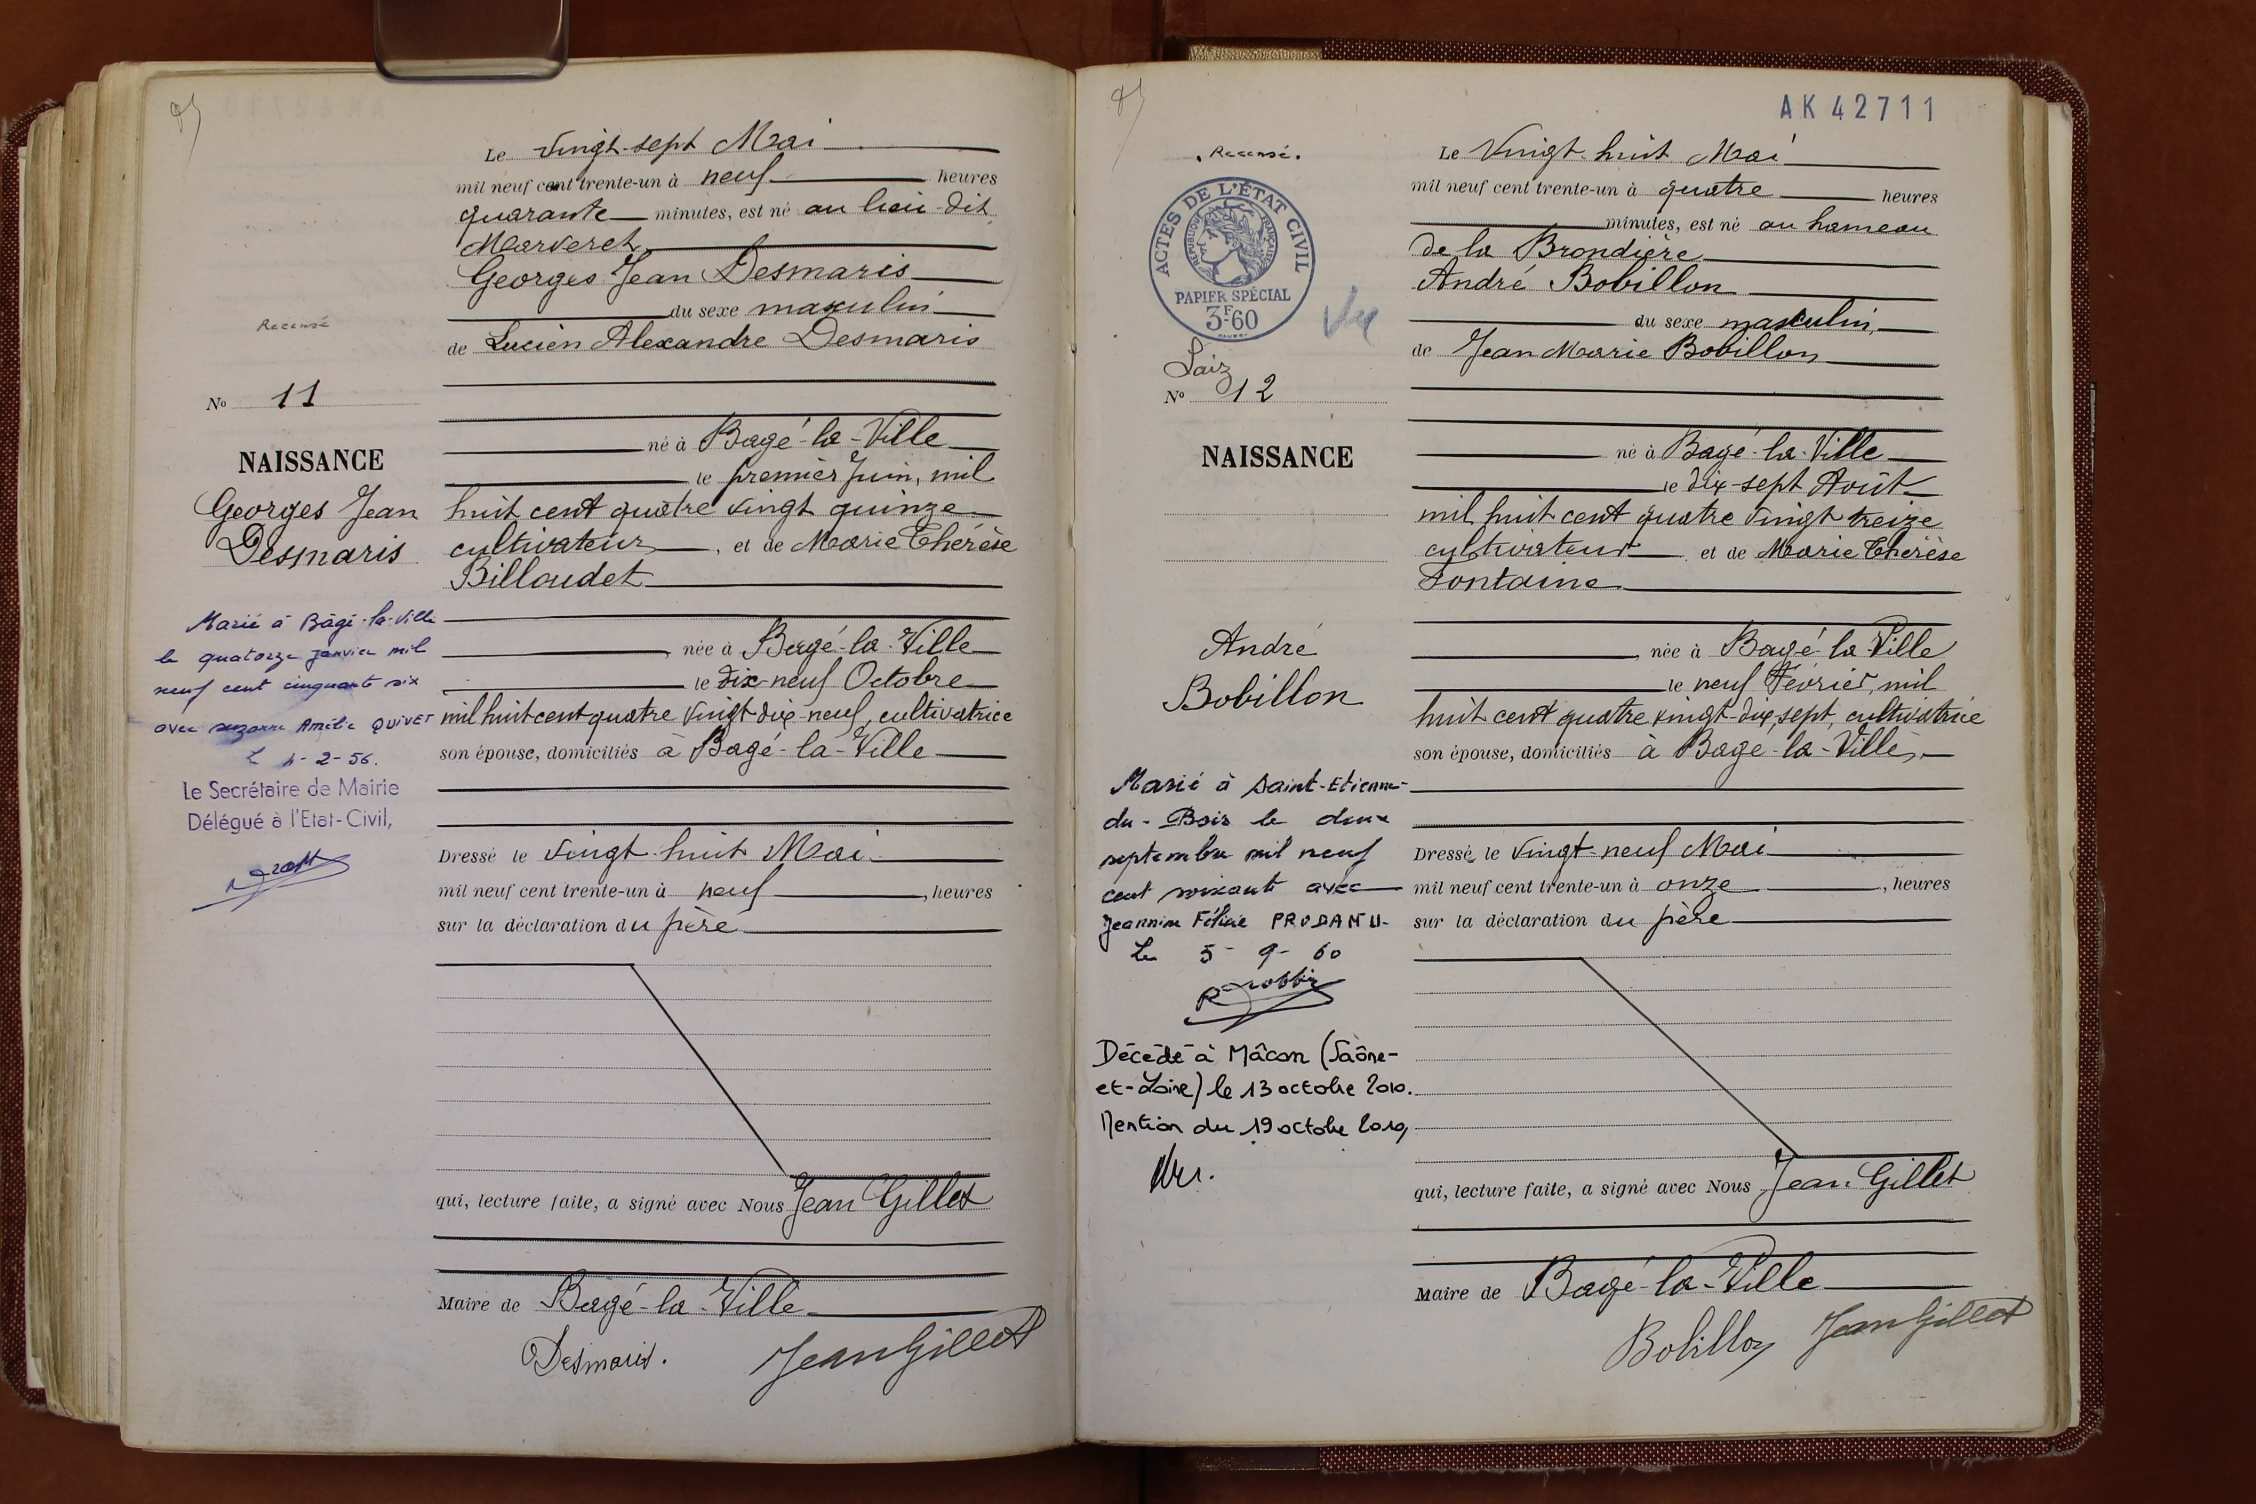 Le vingt-sept Mai
mil neuf cent trente-un à neuf heures
quarante minutes, est né au lieu-dit
Marveret
Georges Jean Desmaris
du sexe masculin
de Lucien Alexandre Desmaris
né à Bagé-la-Ville
le premier Juin, mil
huit cent quatre vingt quinze
cultivateur, et de Marie Thérèse
Billoudet
née à Bagé-la-Ville
le dix-neuf Octobre
mil huit cent quatre vingt-dix-neuf, cultivatrice
son épouse, domiciliés à Bagé-la-Ville
Dressé le vingt-huit Mai
mil neuf cent trente-un à neuf, heures
sur la déclaration du père
qui, lecture faite, a signé avec Nous Jean Gillet
Maire de Bagé-la-Ville
Desmaris. Jean Gillet
Recensé
No 11
NAISSANCE
Georges Jean
Desmaris
Marié à Bâgé-la-Ville
le quatorze janvier mil
neuf cent cinquante six
avec Suzanne Amélie QUIVET
L 4-2-56.
Le Secrétaire de Mairie
Délégué à l'Etat-Civil,
AK42711
Le Vingt-huit Mai
mil neuf cent trente-un à quatre heures
minutes, est né au hameau
de la Brondière
André Bobillon
du sexe masculin,
de Jean Marie Bobillon
né à Bagé-la-Ville
le dix-sept Août
mil huit cent quatre vingt treize
cultivateur et de Marie Thérèse
Fontaine
, née à Bagé-la-Ville
le neuf Février, mil
huit cent quatre vingt-dix sept, cultivatrice
son épouse, domiciliés à Bagé-la-Ville,
Dressé le vingt-neuf Mai
mil neuf cent trente-un à onze, heures
sur la déclaration du père
qui, lecture faite, a signé avec Nous Jean Gillet
Maire de Bagé-la-Ville
Bobillon Jean Gillet
Recensé.
ACTES DE L'ÉTAT CIVIL
RÉPUBLIQUE FRANÇAISE
PAPIER SPÉCIAL
3F60
Vu
Laiz
No 12
NAISSANCE
André
Bobillon
Marié à Saint-Etienne-
du-Bois le deux
septembre mil neuf
cent soixante avec
Jeannine Félicie
Le 5-9-60
Décédé à Mâcon (Saône-
et-Loire) le 13 octobre 2010.
Mention du 19 octobre 2010,